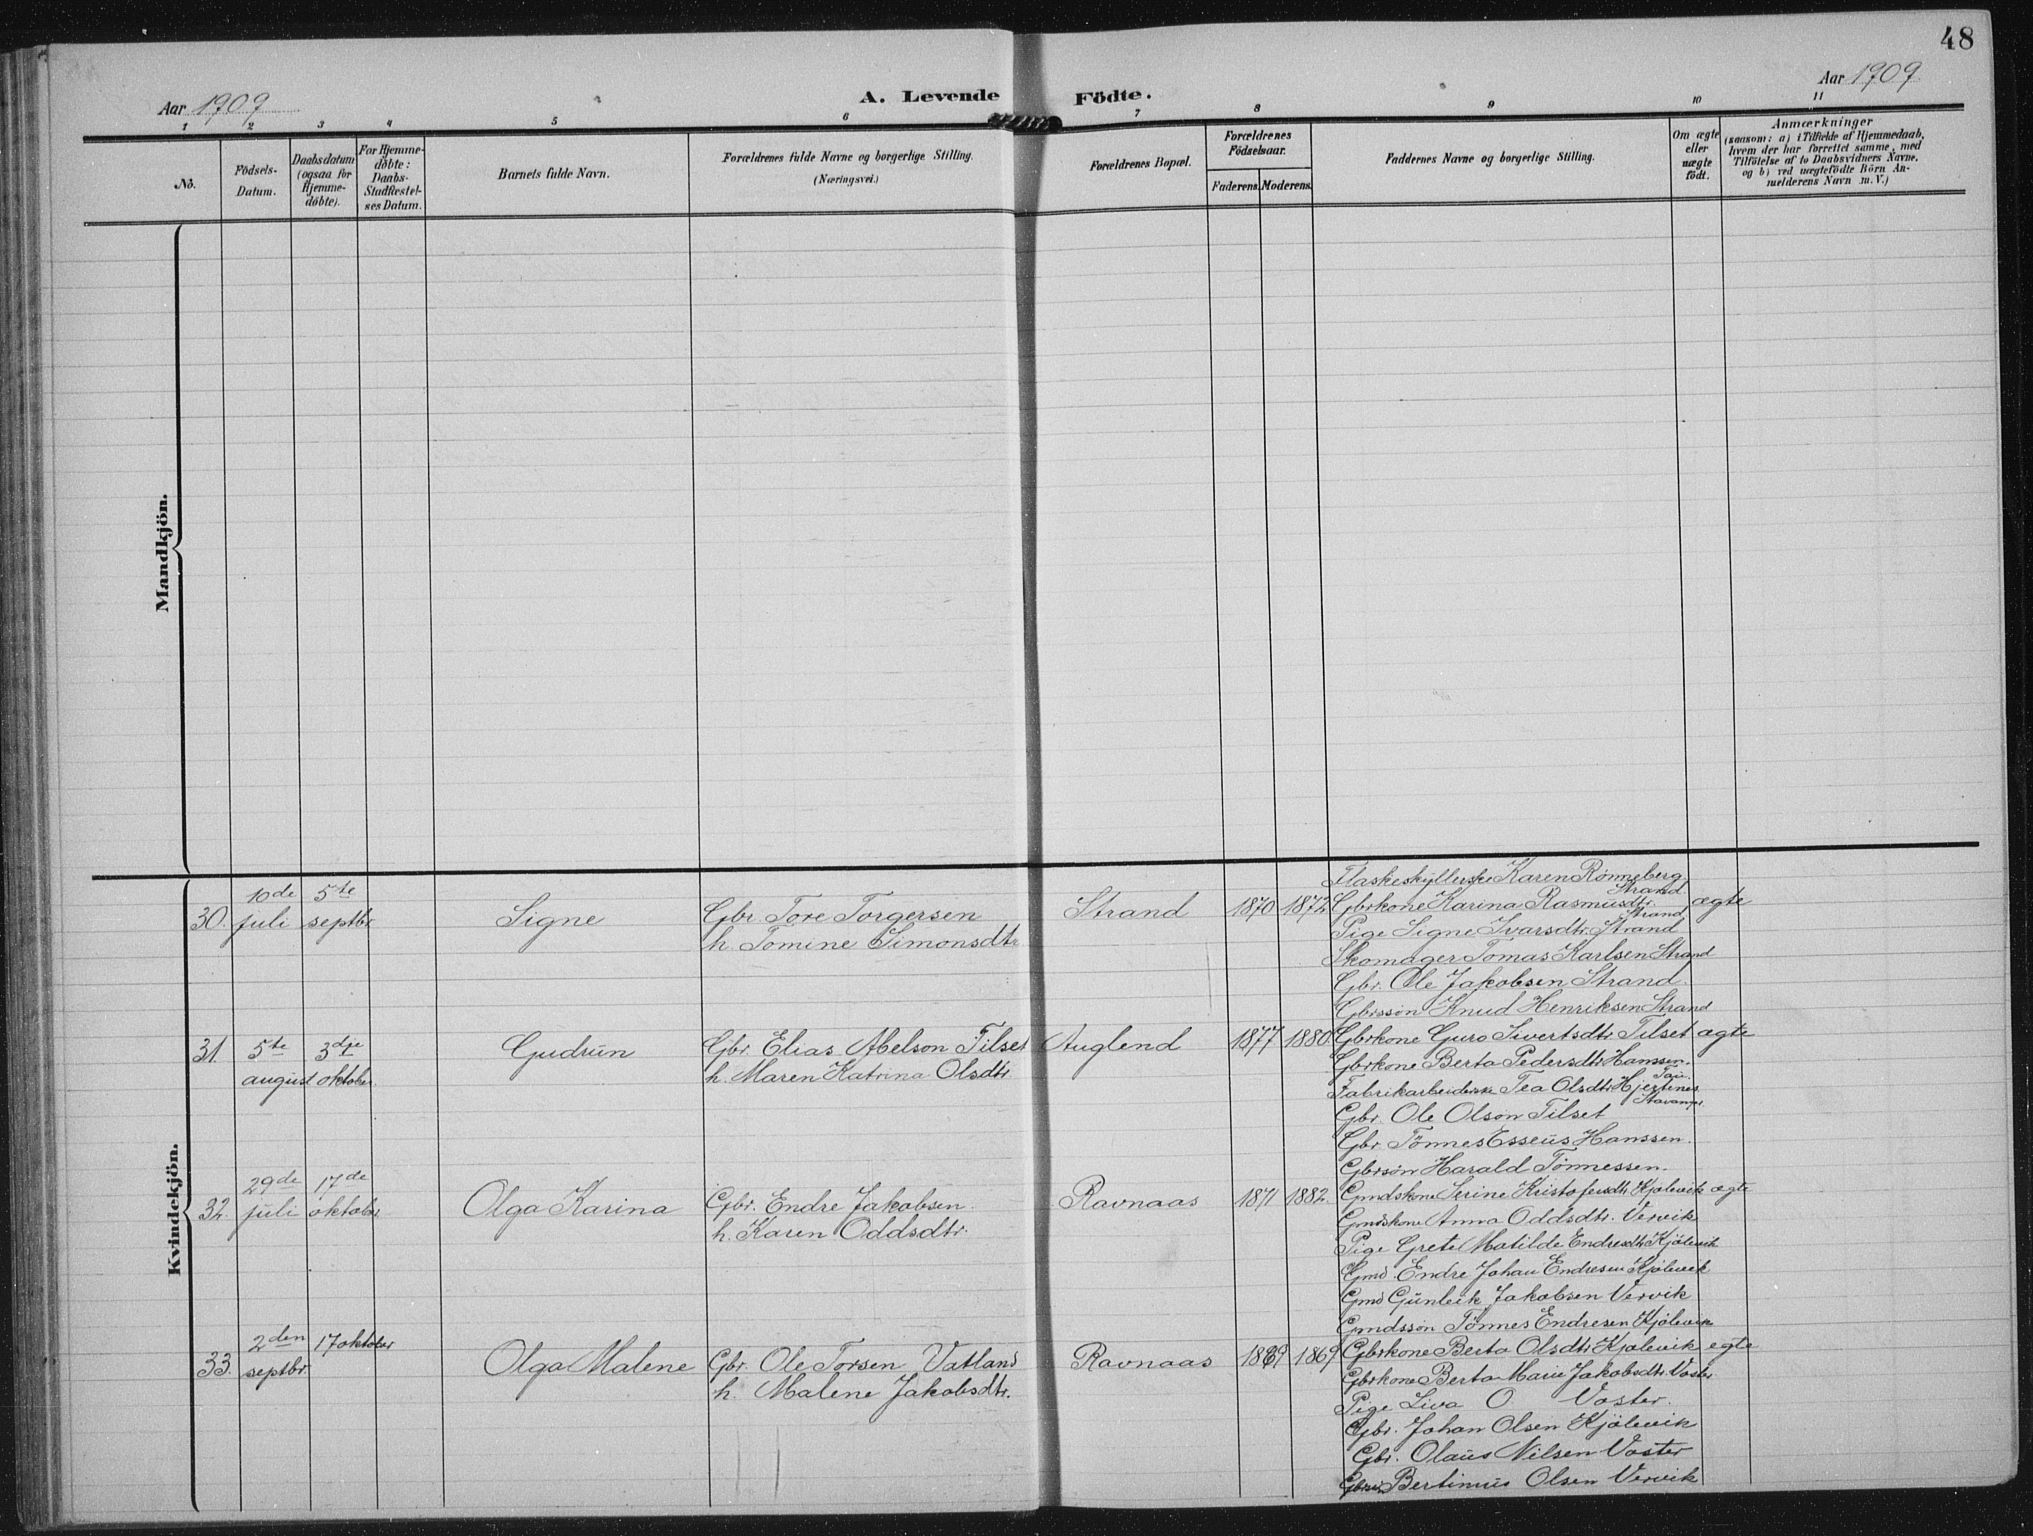 48
Aar 1909
A. Levende Födte.
Aar 1909.
1 2 3 4 5 6 7 8 9 10 11
No.
Födsels-
Datum.
Daabsdatum
(ogsaa for
Hjemme-
döbte).
For Hjemme-
döbte:
Daabs-
Stadfæstel-
ses Datum.
Barnets fulde Navn.
Forældrenes fulde Navne og borgerlige Stilling.
(Næringsvei.)
Forældrenes Bopæl.
Forældrenes
Födselsaar.
Faderens. Moderens.
Faddernes Navne og borgerlige Stilling.
Om ægte
eller
uægte
födt.
Anmærkninger
(saasom: a) i Tilfælde af Hjemmedaab,
hvem der har forrettet samme, med
Tilföielse af to Daabsvidners Navne,
og b) ved uægtefödte Börn An-
melderens Navn m. V.)
Mandkjön.
Kvindekjön.
30.
10de
juli
5te
septbr.
Signe
Gbr. Tore Torgersen
h. Tomine Simonsdtr.
Strand
1870 1872
Flaskeskyllerske Karen Rönneberg
Strand
Gbrkone Karina Rasmusdtr.
Strand
Pige Signe Ivarsdtr. Strand
Skomager Tomas Karlsen Strand
Gbr. Ole Jakobsen Strand.
Gbrssön Knud Henriksen Strand
ægte
31
5te
august
3dje
oktober
Gudrun
Gbr. Elias Abelson Tilset
h. Maren Katrina Olsdtr.
Auglend
1877 1880
Gbrkone Guro Sivertsdtr. Tilset
Gbrkone Berta Pedersdtr. Hanssen.
Tau
Fabrikarbeiderske Tea Olsdtr. Hjelmes
Stavanger
Gbr. Ole Olson Tilset
Gbr. Tönnes Esseus Hanssen.
Gbrsön Harald Tönnessen.
ægte
32.
29de
juli
17de
oktober
Olga Karina
Gbr. Endre Jakobsen.
h. Karen Oddsdtr.
Ravnaas
1871 1882.
Gmdskone Serine Kristofersdtr. Kjölevik
Gmdskone Anna Oddsdtr. Vervik
Pige Grete Matilde Endresdtr. Kjölevik
Gmd. Endre Johan Endresen Kjölevik
Gmd Gunleik Jakobsen Vervik
Gmdssön Tönnes Endresen Kjölevik
ægte
33.
2den
septbr.
17 oktober
Olga Malene
Gbr. Ole Torsen Vatland
h. Malene Jakobsdtr.
Ravnaas
1869
Gbrkone Berta Olsdtr. Kjölevik
Gbrkone Berta Marie Jakobsdtr. Voster
Pige Liva O. Voster.
Gbr. Johan Olsen Kjölevik
Gbr. Olaus Nilsen Voster
Bertinius Olsen Vervik
egte